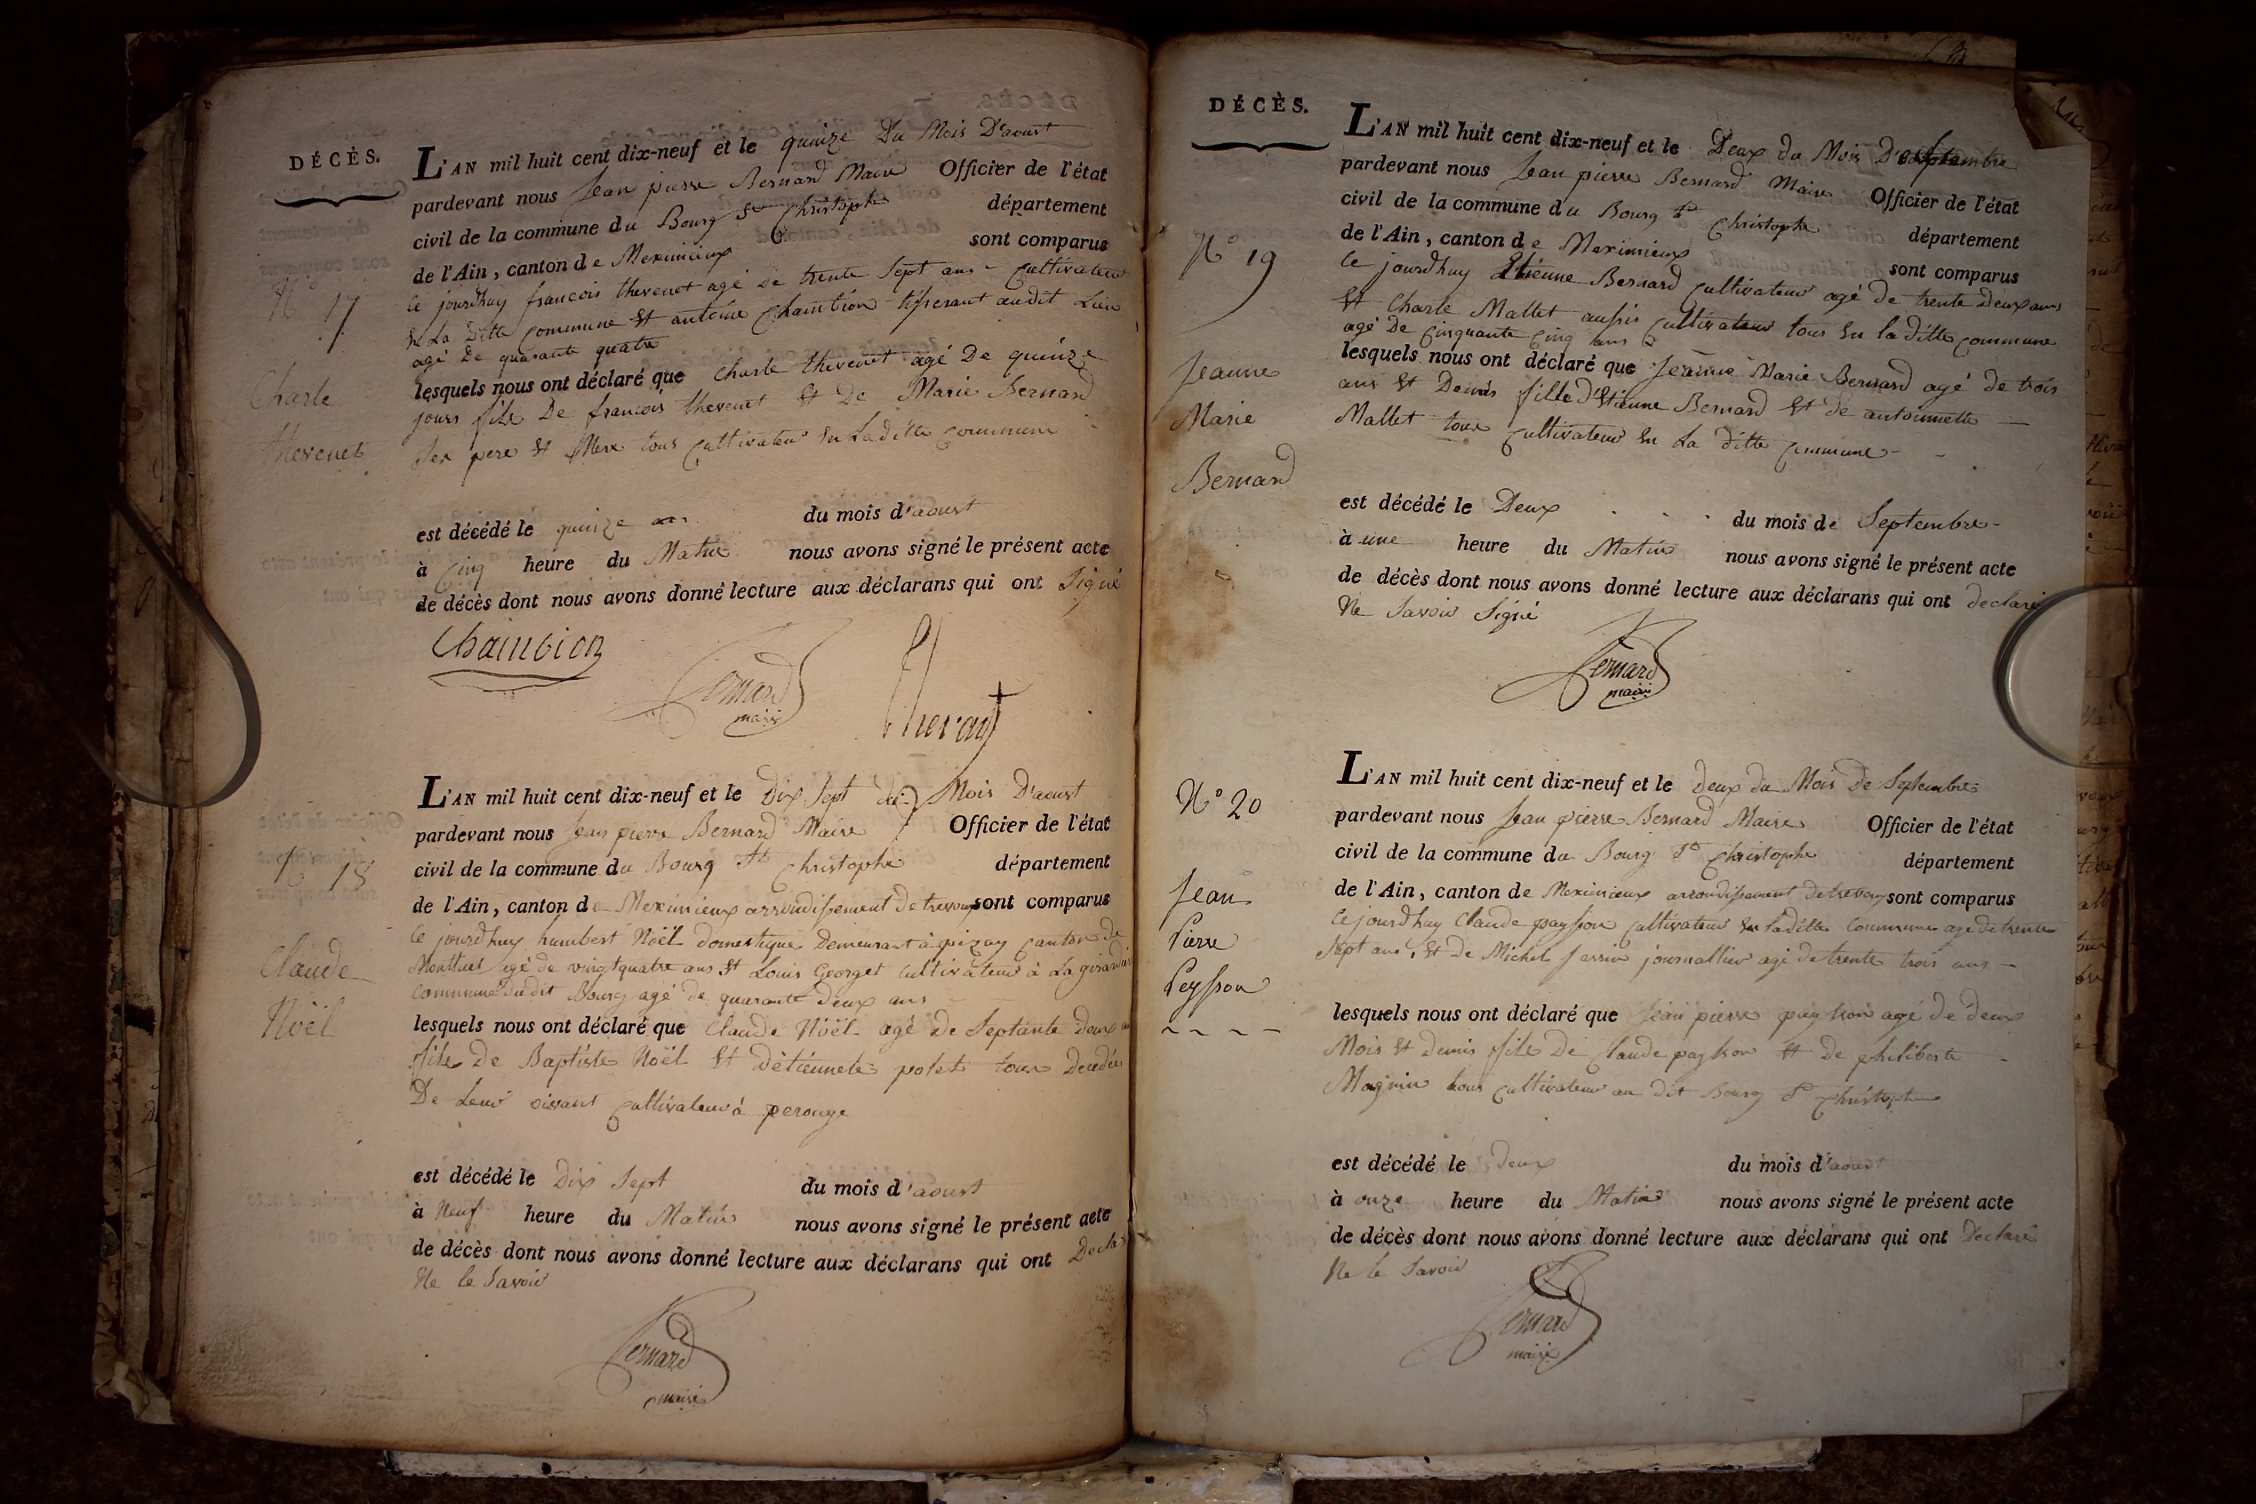 DÉCÈS.
N° 17
Charle
thevenet
L'AN mil huit cent dix-neuf et le quinze Du Mois D'aoust
pardevant nous Jean pierre Bernard Maire Officier de l'état
civil de la commune du Bourg St Christophe département
de l'Ain, canton de Meximieux sont comparus
Ce jourdhuy francois thevenet agé de trente Sept ans Cultivateur
En La Ditte Commune Et antoine Chambion tisserant audit Lieu
agé De quarante quatre
lesquels nous ont déclaré que Charle thevenet agé De quinze
jours fils De francois thevenet Et De Marie Bernard
Ses pere Et Mere tous Cultivateur En La ditte Commune
est décédé le quinze du mois d'aoust
à Cinq heure du Matin nous avons signé le présent acte
de décès dont nous avons donné lecture aux déclarans qui ont Signé
Chambion
Bernard
maire
N° 18
Claude
Noël
L'AN mil huit cent dix-neuf et le Dix Sept du Mois D'aoust
pardevant nous Jean pierre Bernard Maire Officier de l'état
civil de la commune du Bourg St Christophe département
de l'Ain, canton de Meximieux arrondissement de trevoux sont comparus
Ce jourdhuy humbert Noël domestique Demeurant à pizay Canton de
Montluel agé de vingt quatre ans Et Louis Georget Cultivateur à La
Commune Du dit Bourg agé de quarante Deux ans
lesquels nous ont déclaré que Claude Nöël agé de Septante Deux
fils De Baptiste Noël Et D'étiennete potet tous Decedés
De Leur vivant Cultivateur à perouge
est décédé le Dix Sept du mois d'aoust
à Neuf heure du Matin nous avons signé le présent acte
de décès dont nous avons donné lecture aux déclarans qui ont Decla
Ne le Savoir
Bernard
maire
DÉCÈS.
N° 19
Jeanne
Marie
Bernard
L'AN mil huit cent dix-neuf et le Deux du Mois De Septembre
pardevant nous Jean pierre Bernard Maire Officier de l'état
civil de la commune du Bourg St Christophe département
de l'Ain, canton de Meximieux sont comparus
Ce jourdhuy Etienne Bernard Cultivateur agé de trente Deux ans
Et Charle Mallet aussi Cultivateur tous En la ditte Commune
agé De Cinquante Cinq ans
lesquels nous ont déclaré que Jeanne Marie Bernard agé de trois
ans Et Demis fille d'Etienne Bernard Et de antoinnette
Mallet tous Cultivateur En La ditte Commune
est décédé le Deux du mois de Septembre
à une heure du Matin nous avons signé le présent acte
de décès dont nous avons donné lecture aux déclarans qui ont declaré
Ne Savoir Signé
Bernard
maire
N° 20
Jean
Pierre
Peysson
L'AN mil huit cent dix-neuf et le deux du Mois De Septembre
pardevant nous Jean pierre Bernard Maire Officier de l'état
civil de la commune du Bourg St Christophe département
de l'Ain, canton de Meximieux arrondissement de trevoux sont comparus
Ce jourdhuy Claude paysson Cultivateur En la ditte Commune agé de trente
Sept ans, Et De Michel Jarrin journallier agé de trente trois ans
lesquels nous ont déclaré que Jean pierre agé de deux
Mois Et demis fils De Claude Et de philiberte
Magnin tous Cultivateur au dit Bourg St Christophe
est décédé le deux du mois d'aoust
à onze heure du Matin nous avons signé le présent acte
de décès dont nous avons donné lecture aux déclarans qui ont Déclaré
Ne le Savoir
Bernard
maire